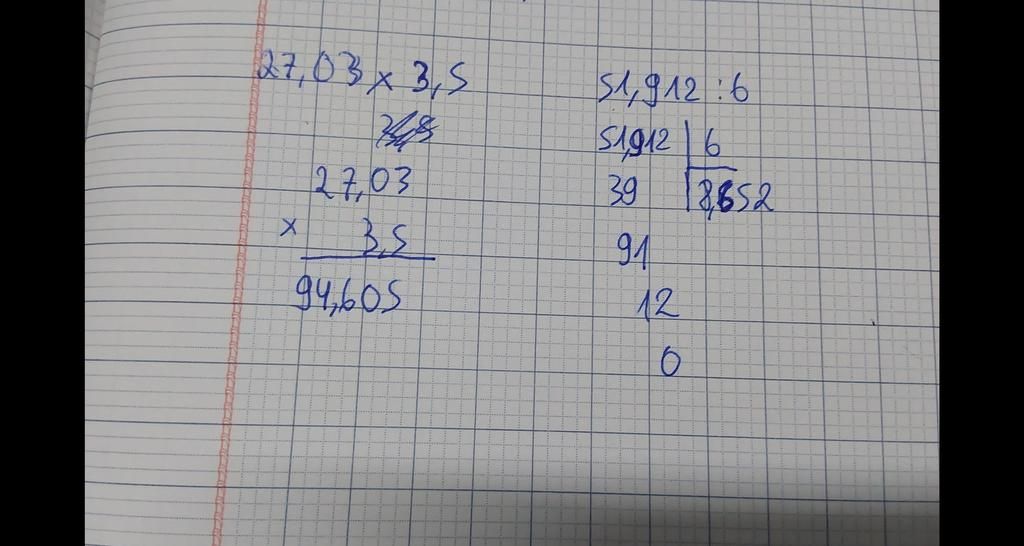 27,03 x 3,5
27,03
x 3,5
94,605
51,912 : 6
51,912 6
39 8,652
91
12
0